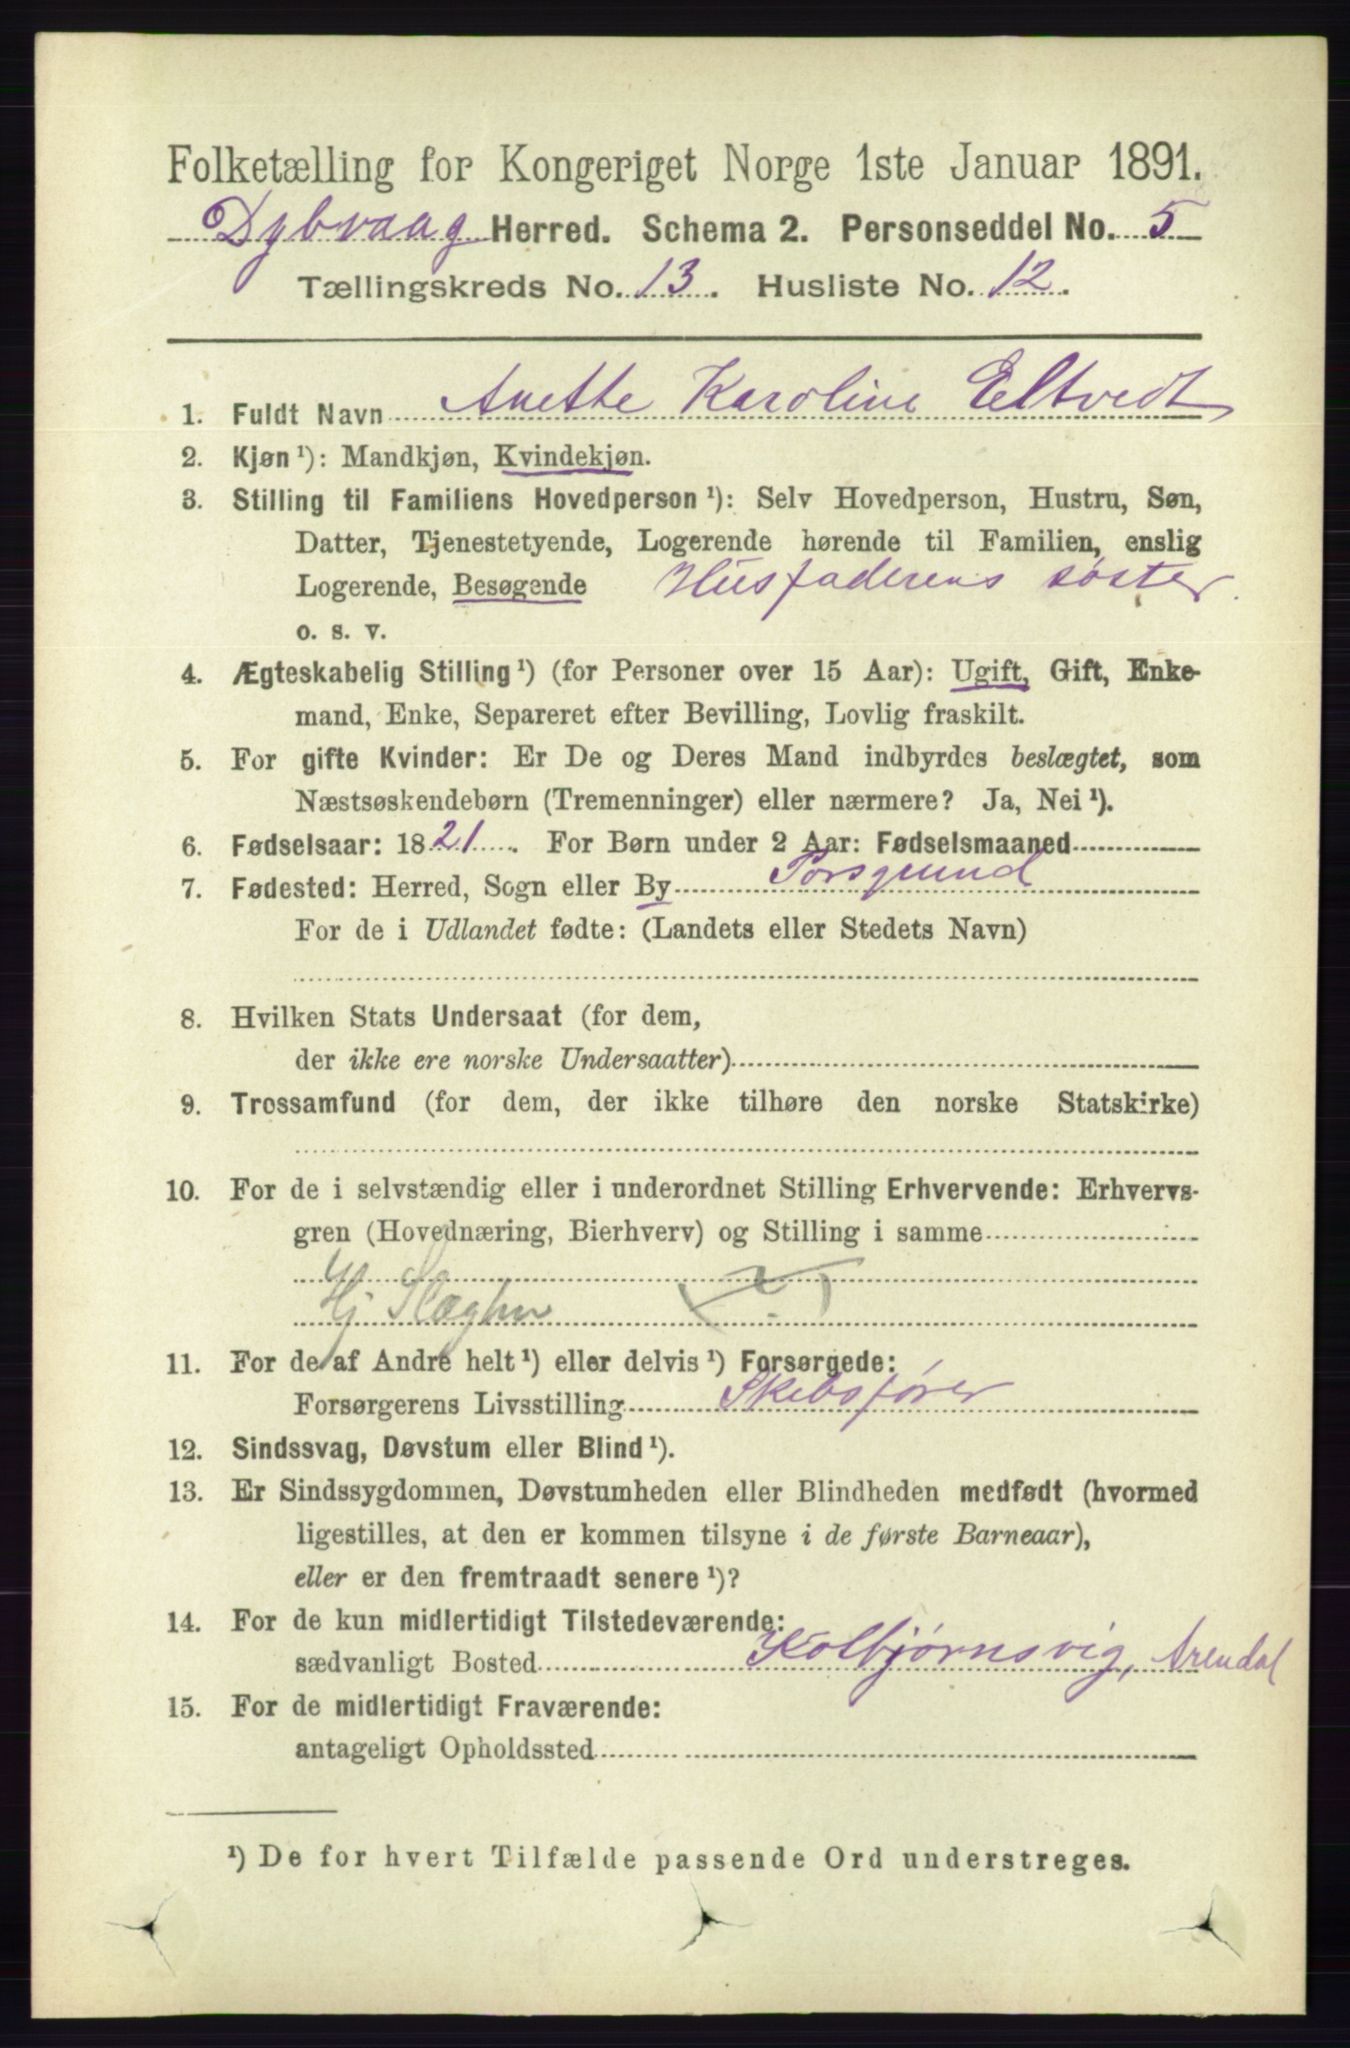 Folketælling for Kongeriget Norge 1ste Januar 1891.
Dybvaag Herred. Schema 2. Personseddel No. 5
Tællingskreds No. 13. Husliste No. 12.
1. Fuldt Navn Anette Karoline Eltvedt
2. Kjøn ¹): Mandkjøn, Kvindekjøn.
3. Stilling til Familiens Hovedperson ¹): Selv Hovedperson, Hustru, Søn,
Datter, Tjenestetyende, Logerende hørende til Familien, enslig
Logerende, Besøgende Husfaderens søster.
o. s. v.
4. Ægteskabelig Stilling ¹) (for Personer over 15 Aar): Ugift, Gift, Enke-
mand, Enke, Separeret efter Bevilling, Lovlig fraskilt.
5. For gifte Kvinder: Er De og Deres Mand indbyrdes beslægtet, som
Næstsøskendebørn (Tremenninger) eller nærmere? Ja, Nei ¹).
6. Fødselsaar: 1821. For Børn under 2 Aar: Fødselsmaaned
7. Fødested: Herred, Sogn eller By Porsgrund
For de i Udlandet fødte: (Landets eller Stedets Navn)
8. Hvilken Stats Undersaat (for dem,
der ikke ere norske Undersaatter)
9. Trossamfund (for dem, der ikke tilhøre den norske Statskirke)
10. For de i selvstændig eller i underordnet Stilling Erhvervende: Erhvervs-
gren (Hovednæring, Bierhverv) og Stilling i samme
Hj
11. For de af Andre helt ¹) eller delvis ¹) Forsørgede:
Forsørgerens Livsstilling Skibsfører
12. Sindssvag, Døvstum eller Blind ¹).
13. Er Sindssygdommen, Døvstumheden eller Blindheden medfødt (hvormed
ligestilles, at den er kommen tilsyne i de første Barneaar),
eller er den fremtraadt senere ¹)?
14. For de kun midlertidigt Tilstedeværende:
sædvanligt Bosted Kolbjørnsvig, Arendal
15. For de midlertidigt Fraværende:
antageligt Opholdssted
¹) De for hvert Tilfælde passende Ord understreges.